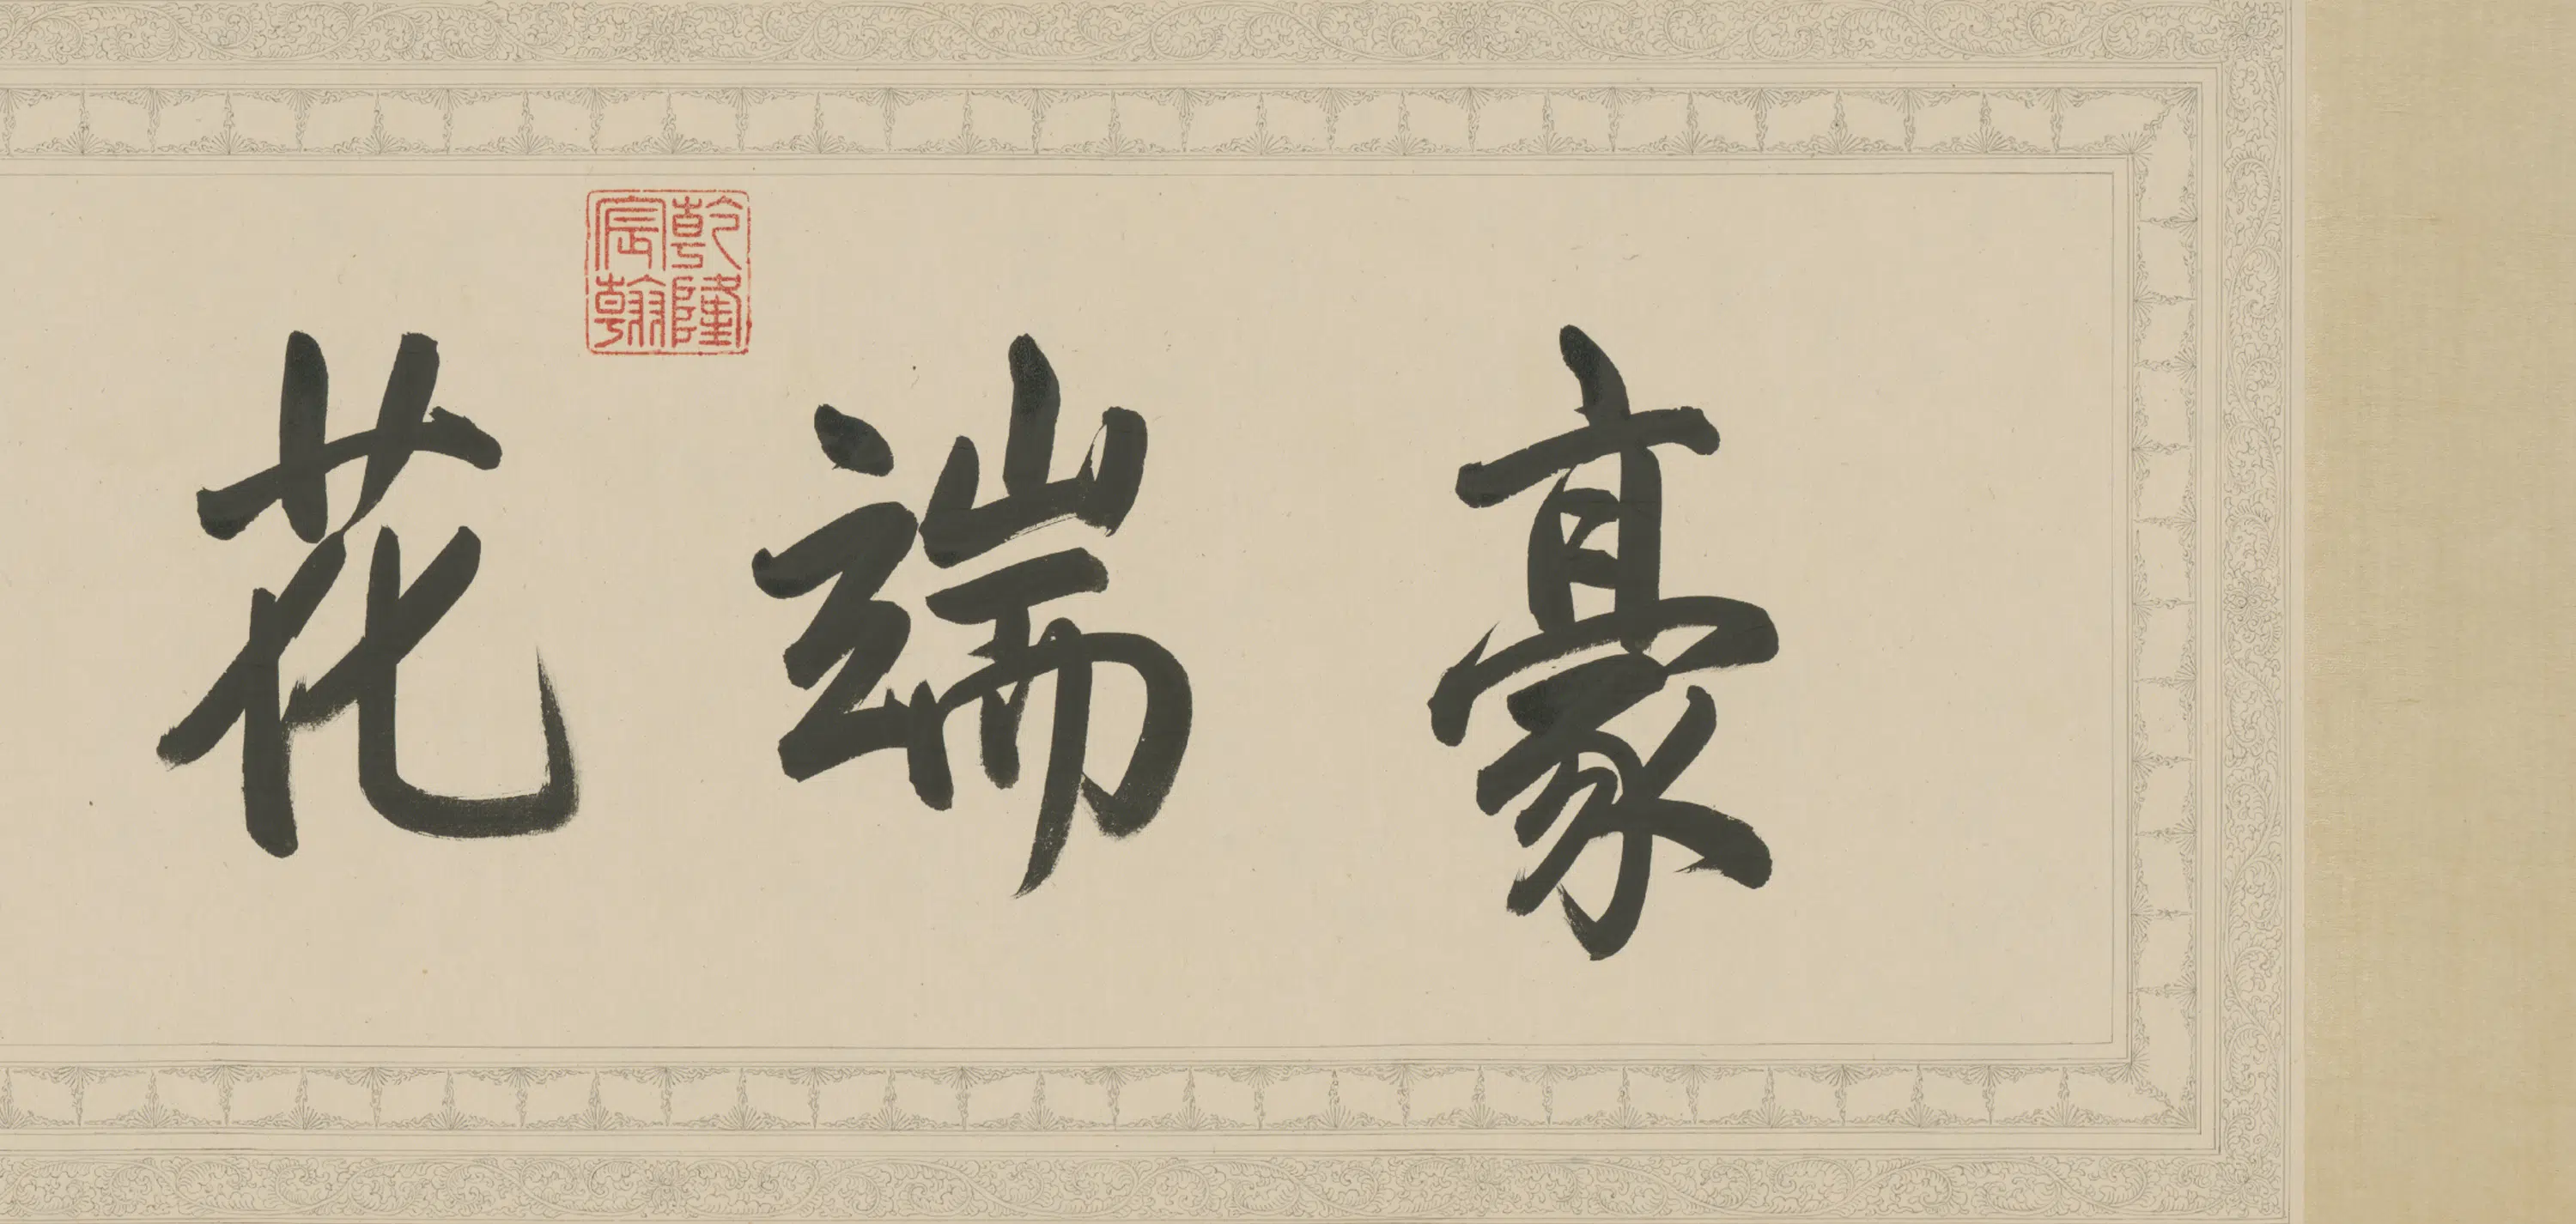 豪端花
乾隆
宸翰